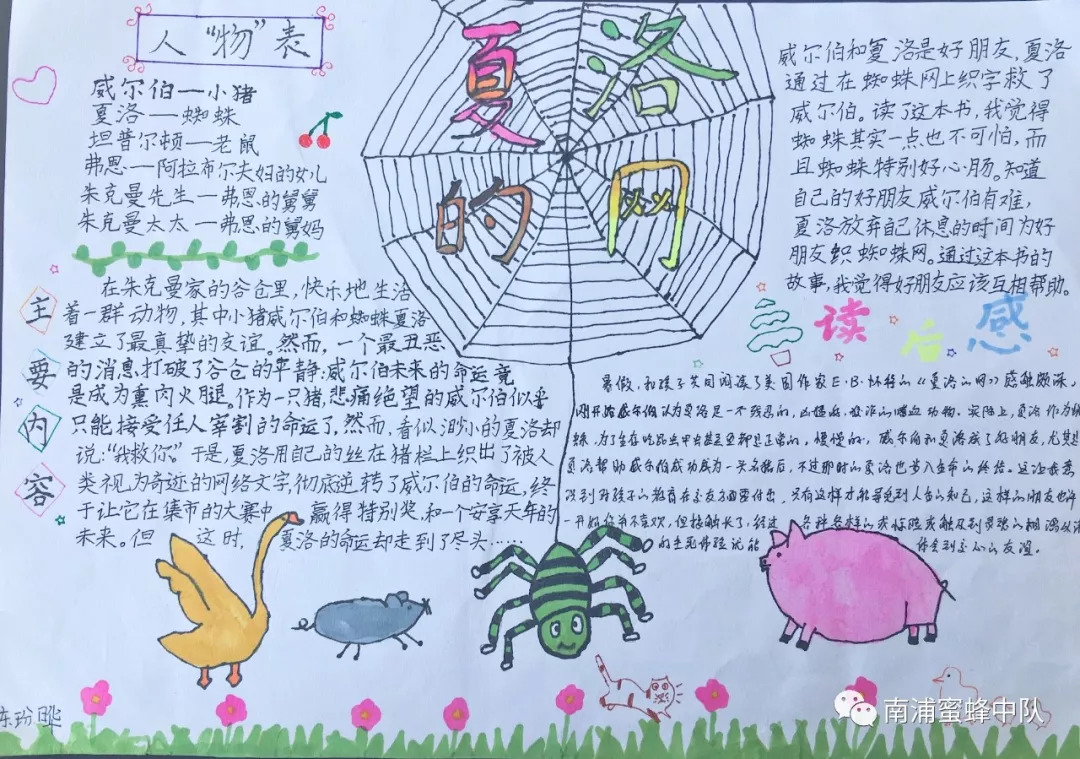 人“物”表
威尔伯—小猪
夏洛—蜘蛛
坦普尔顿—老鼠
弗恩—阿拉布尔夫妇的女儿
朱克曼先生—弗恩的舅舅
朱克曼太太—弗恩的舅妈
夏洛
的网
威尔伯和夏洛是好朋友,夏洛
通过在蜘蛛网上织字救了
威尔伯。读了这本书,我觉得
蜘蛛其实一点也不可怕,而
且蜘蛛特别好心肠。知道
自己的好朋友威尔伯有难,
夏洛放弃自己休息的时间为好
朋友织蜘蛛网。通过这本书的
故事,我觉得好朋友应该互相帮助。
主要内容
在朱克曼家的谷仓里,快乐地生活
着一群动物,其中小猪威尔伯和蜘蛛夏洛
建立了最真挚的友谊。然而,一个最丑恶
的消息打破了谷仓的平静:威尔伯未来的命运竟
是成为熏肉火腿。作为一只猪,悲痛绝望的威尔伯似乎
只能接受任人宰割的命运了,然而,看似渺小的夏洛却
说:“我救你”。于是,夏洛用自己的丝在猪栏上织出了被人
类视为奇迹的网络文字,彻底逆转了威尔伯的命运,终
于让它在集市的大赛中赢得特别奖,和一个安享天年的
未来。但这时,夏洛的命运却走到了尽头……
读后感
暑假,和孩子共同阅读了美国作家E·B·怀特的《夏洛的网》感触颇深。
刚开始威尔伯认为夏洛是一个残忍的,凶
夏洛帮助威尔伯成功成为一头名猪后,不过那时的夏洛也步入生命的终结。
只有这样才能寻觅到人生的知己,这样的朋友也许
一开始你并不喜欢,但接触长了,经过各种各样的
体会到
的友谊。
南浦蜜蜂中队